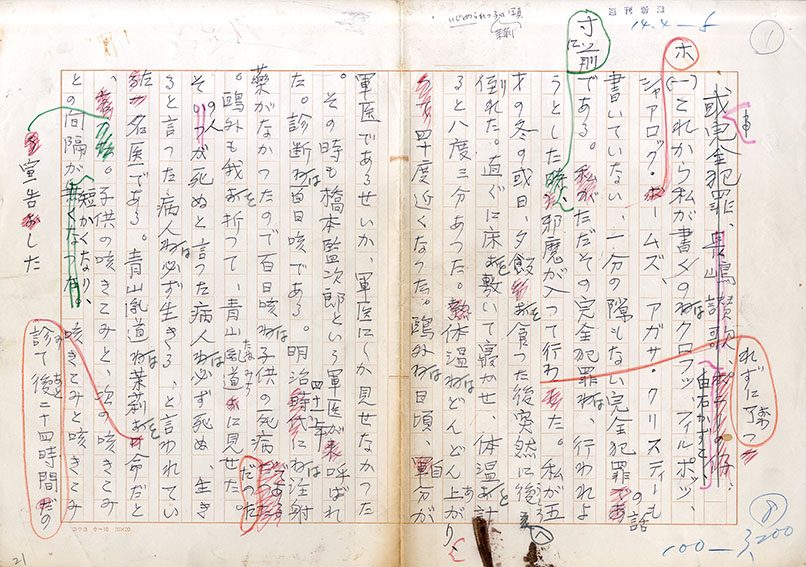 14.4—5
1
或完全犯罪、長嶋讃歌、
由石かずと
(一)これから私が書くのはクロフツ、フィルポッツ、
シャアロック・ホームズ、アガサ・クリスティーも
書いていない、一分の隙もない完全犯罪の話
である。ただその完全犯罪は、行われよ
うとした寸前に、邪魔が入つて行われずに了つた。私が五
才の冬の或日、夕飯を食つた後突然に後へ
倒れた。直ぐに床を敷いて寝かせ、体温を計
ると八度三分あつた。体温はどんどん上がり、
四十度近くなつた。鷗外は日頃、自分が
軍医であるせいか、軍医にしか見せなかつた
。その時も橋本監次郎という軍医が呼ばれ
た。診断は百日咳である。明治四十一年には注射
薬がなかつたので百日咳は子供の死病だつた
。鷗外も我を折つて、青山胤道に見せた。
その人が死ぬと言つた病人は必ず死ぬ、生き
ると言つた病人は必ず生きる、と言われてい
名医である。青山胤道は茉莉を 命だと
。子供の咳きこみと、次の咳きこみ
との間隔が短かくなり、咳きこみと咳きこみ
診て後二十四時間の
宣告をした
ホ
100—3,200
21
コクヨ ケー10 20×20